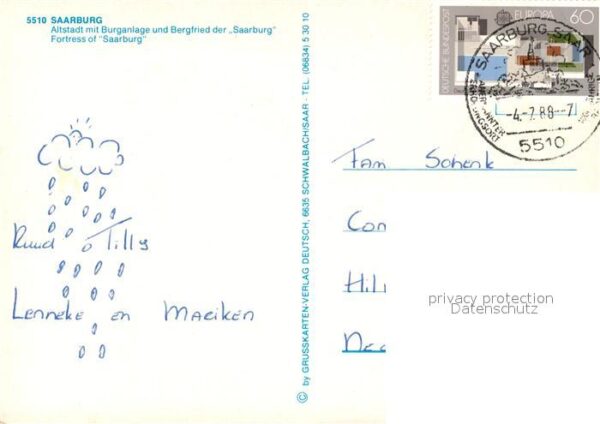 5510 SAARBURG
Altstadt mit Burganlage und Bergfried der „Saarburg"
Fortress of "Saarburg"
Ruud o Tilly
Lenneke en Maeiken
© by GRUSSKARTEN-VERLAG DEUTSCH, 6635 SCHWALBACH/SAAR - TEL. (06834) 5 30 10
DEUTSCHE BUNDESPOST
EUROPA 60
SAARBURG, SAAR
-4.-7.88--7
5510
Fam Schenk
Con
Hil
privacy protection
Datenschutz